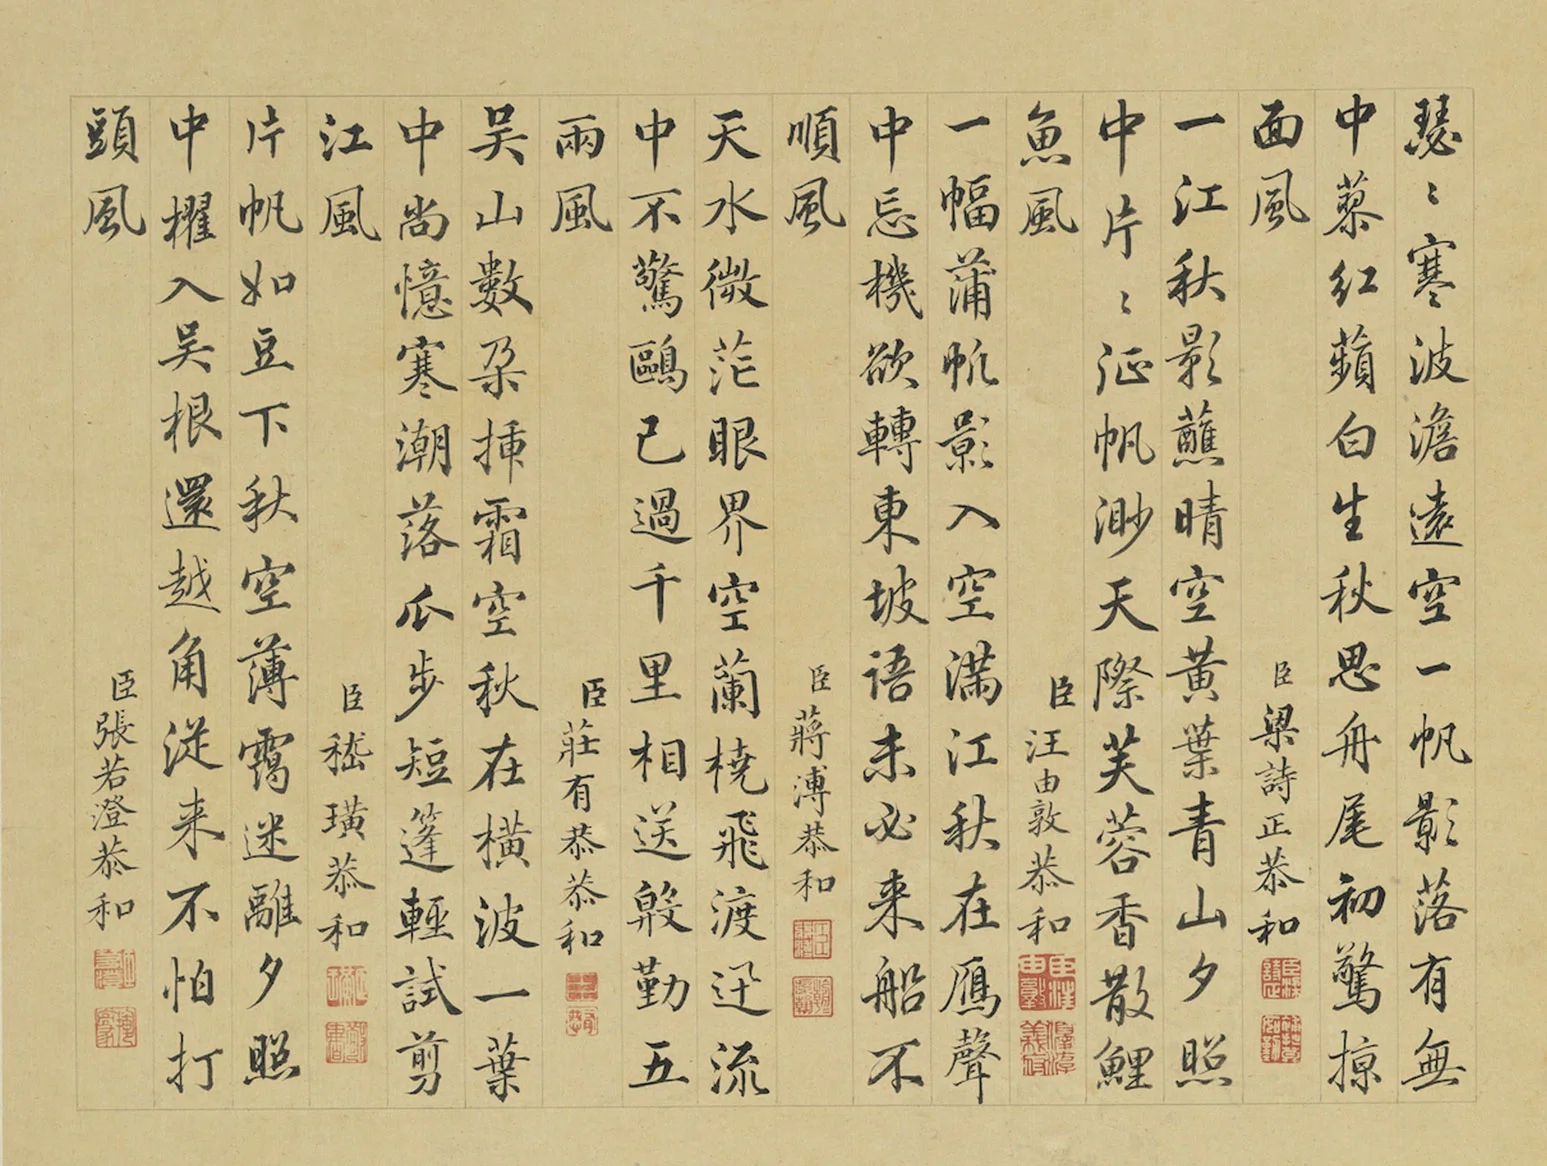 瑟〻寒波澹遠空一帆影落有無
中蓼紅蘋白生秋思舟尾初驚掠
面風
臣梁詩正恭和
一江秋影蘸晴空黃葉青山夕照
中片〻征帆渺天際芙蓉香散鯉
魚風
臣汪由敦恭和
一幅蒲帆影入空滿江秋在鴈聲
中忘機欲轉東坡語未必来船不
順風
臣蔣溥恭和
天水微茫眼界空蘭橈飛渡迅流
中不驚鷗已過千里相送殷勤五
兩風
臣莊有恭恭和
吴山數朶揷霜空秋在橫波一葉
中尚憶寒潮落瓜步短篷輕試剪
江風
臣嵇璜恭和
片帆如豆下秋空薄靄迷離夕照
中櫂入吴根還越角從来不怕打
頭風
臣張若澄恭和